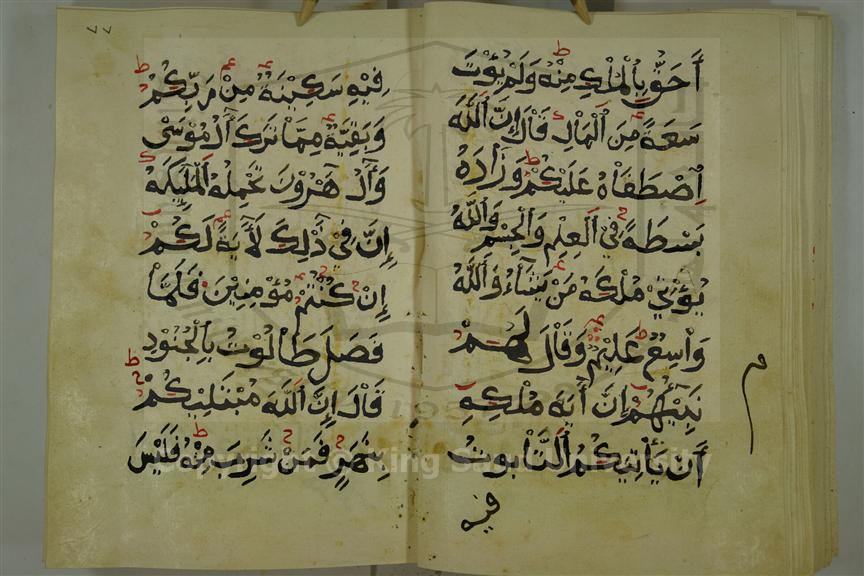 أَحَقُّ بِالْمُلْكِ مِنْهُ وَلَمْ يُؤْتَ
سَعَةً مِنَ الْمَالِ قَالَ إِنَّ اللَّهَ
اصْطَفَاهُ عَلَيْكُمْ وَزَادَهُ
بَسْطَةً فِي الْعِلْمِ وَالْجِسْمِ وَاللَّهُ
يُؤْتِي مُلْكَهُ مَنْ يَشَاءُ وَاللَّهُ
وَاسِعٌ عَلِيمٌ وَقَالَ لَهُمْ
نَبِيُّهُمْ إِنَّ آيَةَ مُلْكِهِ
أَنْ يَأْتِيَكُمُ التَّابُوتُ
فيه
٧٧
فِيهِ سَكِينَةٌ مِنْ رَبِّكُمْ
وَبَقِيَّةٌ مِمَّا تَرَكَ آلُ مُوسَى
وَآلُ هَٰرُونَ تَحْمِلُهُ الْمَلَٰئِكَةُ
إِنَّ فِي ذَٰلِكَ لَآيَةً لَكُمْ
إِنْ كُنْتُمْ مُؤْمِنِينَ فَلَمَّا
فَصَلَ طَالُوتُ بِالْجُنُودِ
قَالَ إِنَّ اللَّهَ مُبْتَلِيكُمْ
بِنَهَرٍ فَمَنْ شَرِبَ مِنْهُ فَلَيْسَ
1957
Copyright © King Saud University